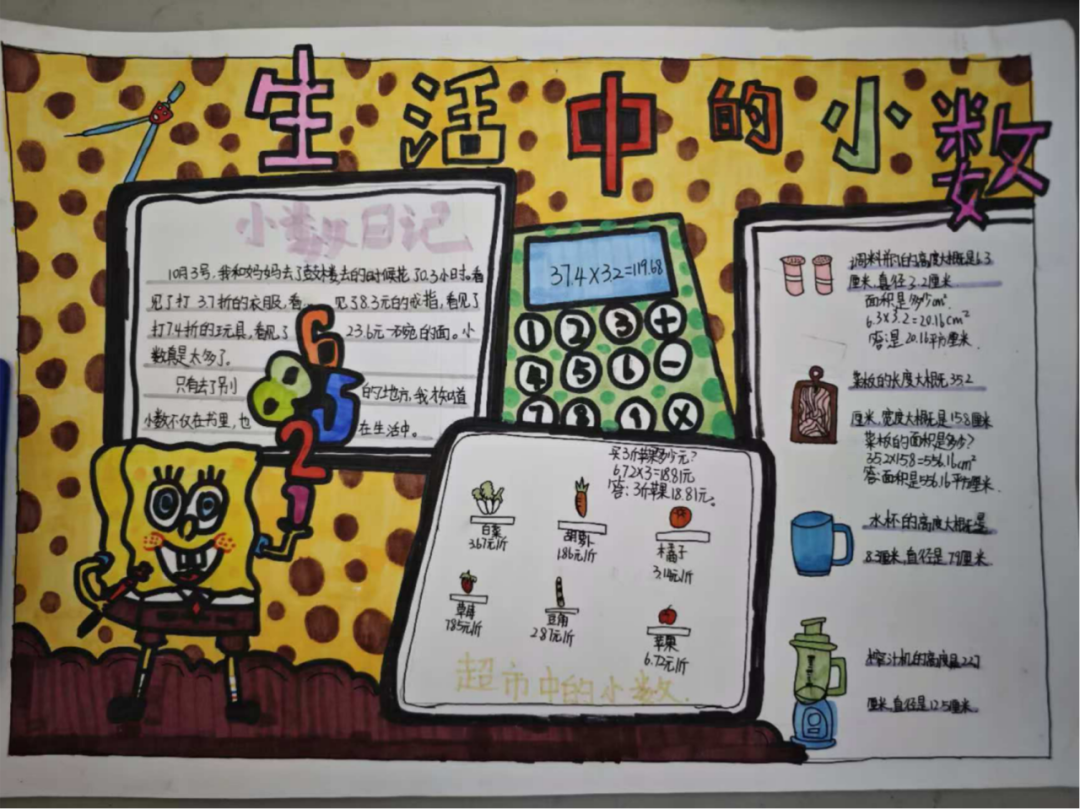 生活中的小数
小数日记
10月3号，我和妈妈去了 去的时候花了0.3小时。看
见了打3.7折的衣服，看 见58.3元的戒指，看见了
打7.4折的玩具，看见了 23.6元一碗的面。小
数真是太多了。
只有去了别 的地方，我才知道
小数不仅在书里，也 在生活中。
6
8 5
2
1
37.4×3.2=119.68
1 2 3 +
4 5 6 -
7 8 9 ×
买3斤苹果多少元？
6.72×3=18.81元
答：3斤苹果18.81元。
白菜
3.67元/斤
胡萝卜
1.86元/斤
橘子
3.14元/斤
草莓
7.85元/斤
豆角
2.87元/斤
苹果
6.72元/斤
超市中的小数
调料瓶的高度大概是6.3
厘米，直径3.2厘米.
面积是多少cm²
6.3×3.2=20.16cm²
答：是20.16平方厘米.
菜板的长度大概是35.2
厘米，宽度大概是15.8厘米
菜板的面积是多少？
35.2×15.8=556.16cm²
答：面积是556.16平方厘米.
水杯的高度大概是
8.3厘米，直径是7.9厘米.
榨汁机的高度是
厘米，直径是12.5厘米.